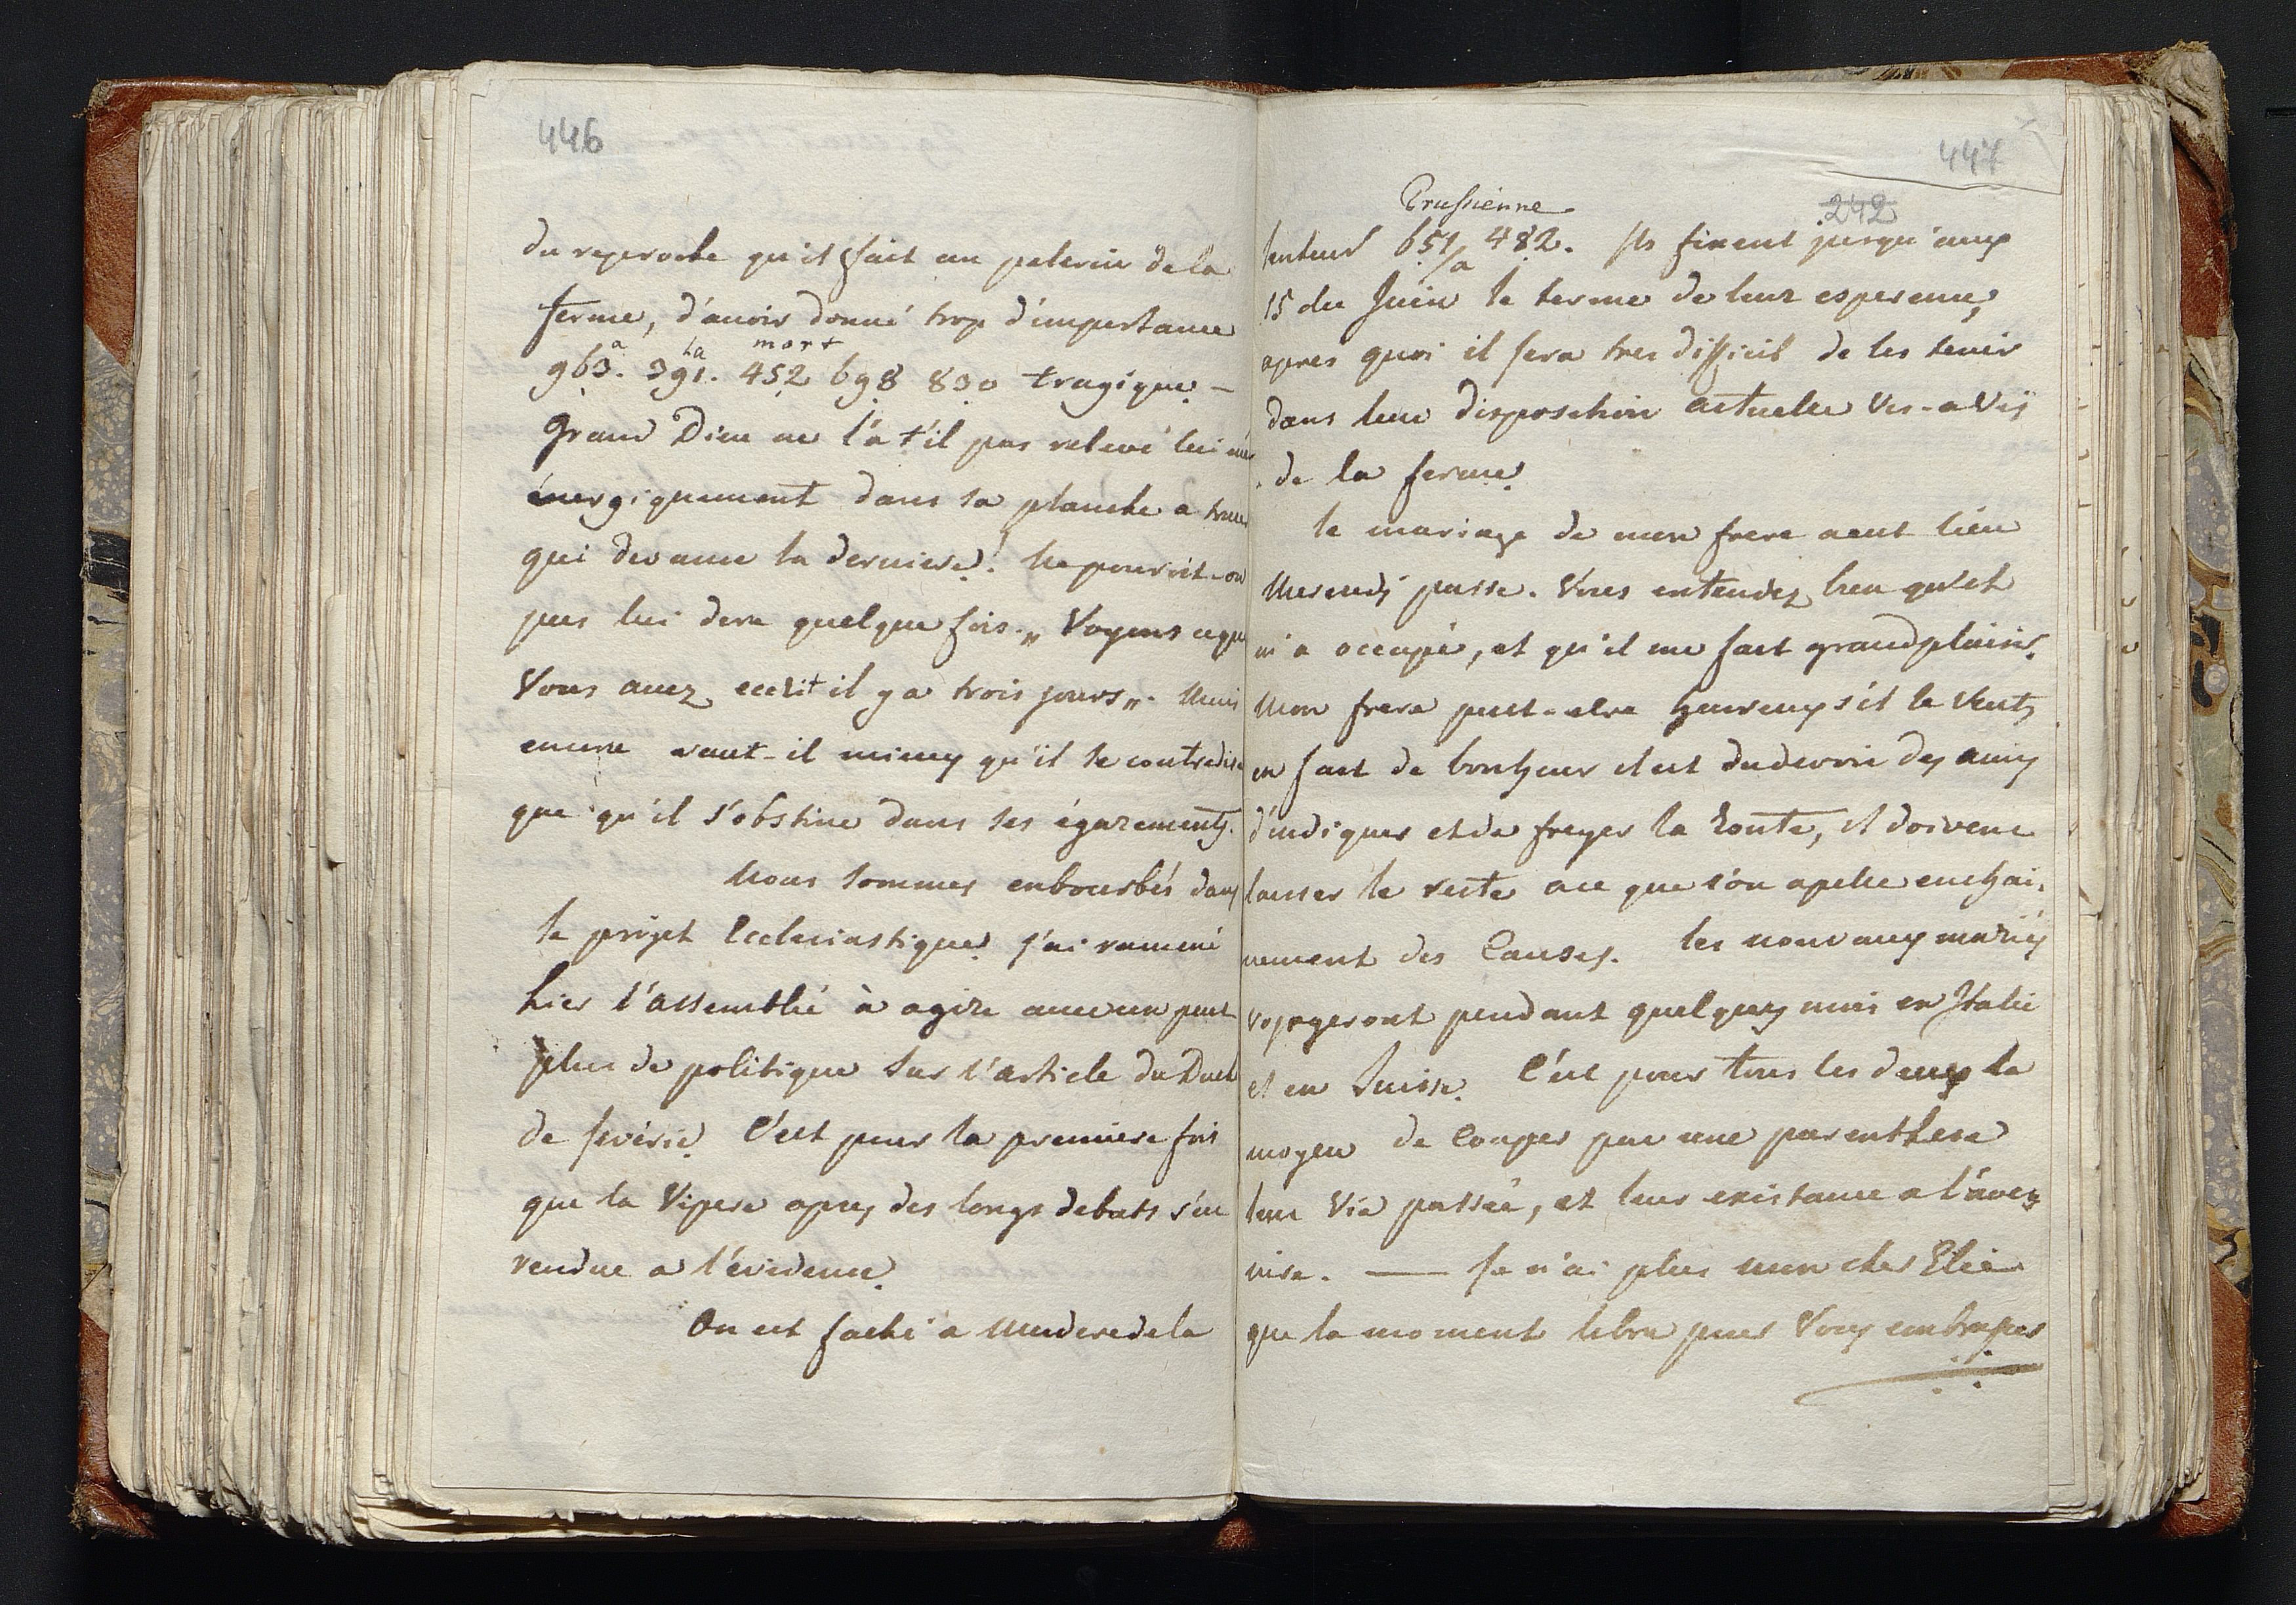 446
du reproche qu'il fait au pelerin de la
ferme, d'avoir donné trop d'importance
a la mort
963. 391. 452 698 830 tragique –
Grand Dieu ne l'a t'il pas relevé lui
énergiquement dans sa planche a
qui devance la derniere! Ne pourroit-on
pas lui dire quelque fois „ Voyons ce que
Vous avez ecrit il y a trois jours„. Mais
encore vaut-il mieux qu'il se contredise
que qu'il s'obstine dans ses égarements.
Nous sommes enbourbés dans
le projet Ecclesiastique. j'ai ramené
hier l'assemblée à agir avec un peut
plus de politique sur l'article du Duché
de severie. C'est pour la premiere fois
que la Vipere apres des longs debats s'est
rendue a l'évidence.
On est faché a de la
447
242
Prussienne
lenteur 651/a 482. Ils fixent jusqu'aux
15 du Juin le terme de leur esperence,
apres quoi il sera tres difficil de les tenir
dans leur disposition actuelle Vis-a Vis
de la ferme.
le mariage de mon frere a eut lieu
Mercredi passe. Vous entendez bien qu'il
m'a occupé, et qu'il me fait grand plaisir.
Mon frere peut-etre heureux s'il le veut,
en fait de bonheur il est du devoir des amis
d'indiquer et de frayer la route, il doivent
laisser le reste a ce que l'on apelle enchai-
nement des Causes. les nouveaux mariés
voyageront pendant quelques mois en Italie
et en Suisse. C'est pour tous les deux le
moyen de Couper par une parenthese
leur Vie passée, et leur existance a l'ave-
nire. — Je n'ai plus mon cher Elie
que le moment libre pour Vous embrasser